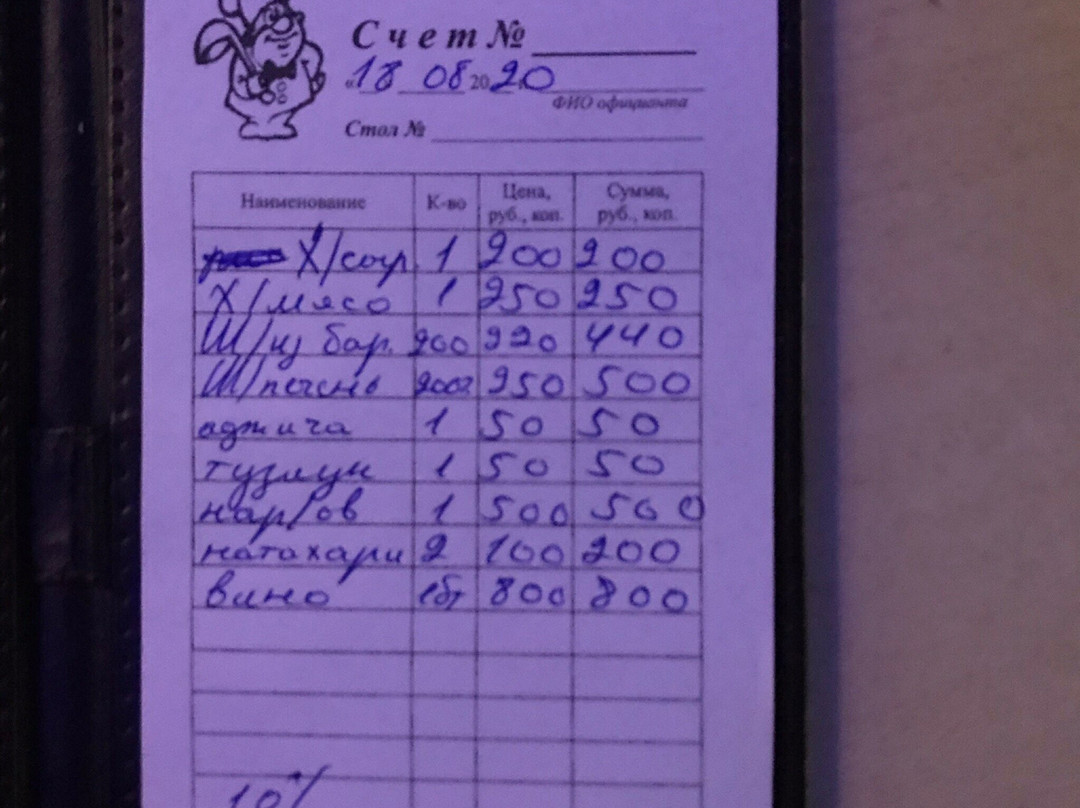 Счет №
«18 08 2020
ФИО официанта
Стол №
Наименование К-во Цена, руб., коп. Сумма, руб., коп.
Х/сыр 1 200 200
Х/мясо 1 250 250
Ш/из бар. 200 220 440
Ш/печень 200г 250 500
аджика 1 50 50
тузлук 1 50 50
нар/ов 1 500 500
натахари 2 100 200
вино 1бт 800 800
10%